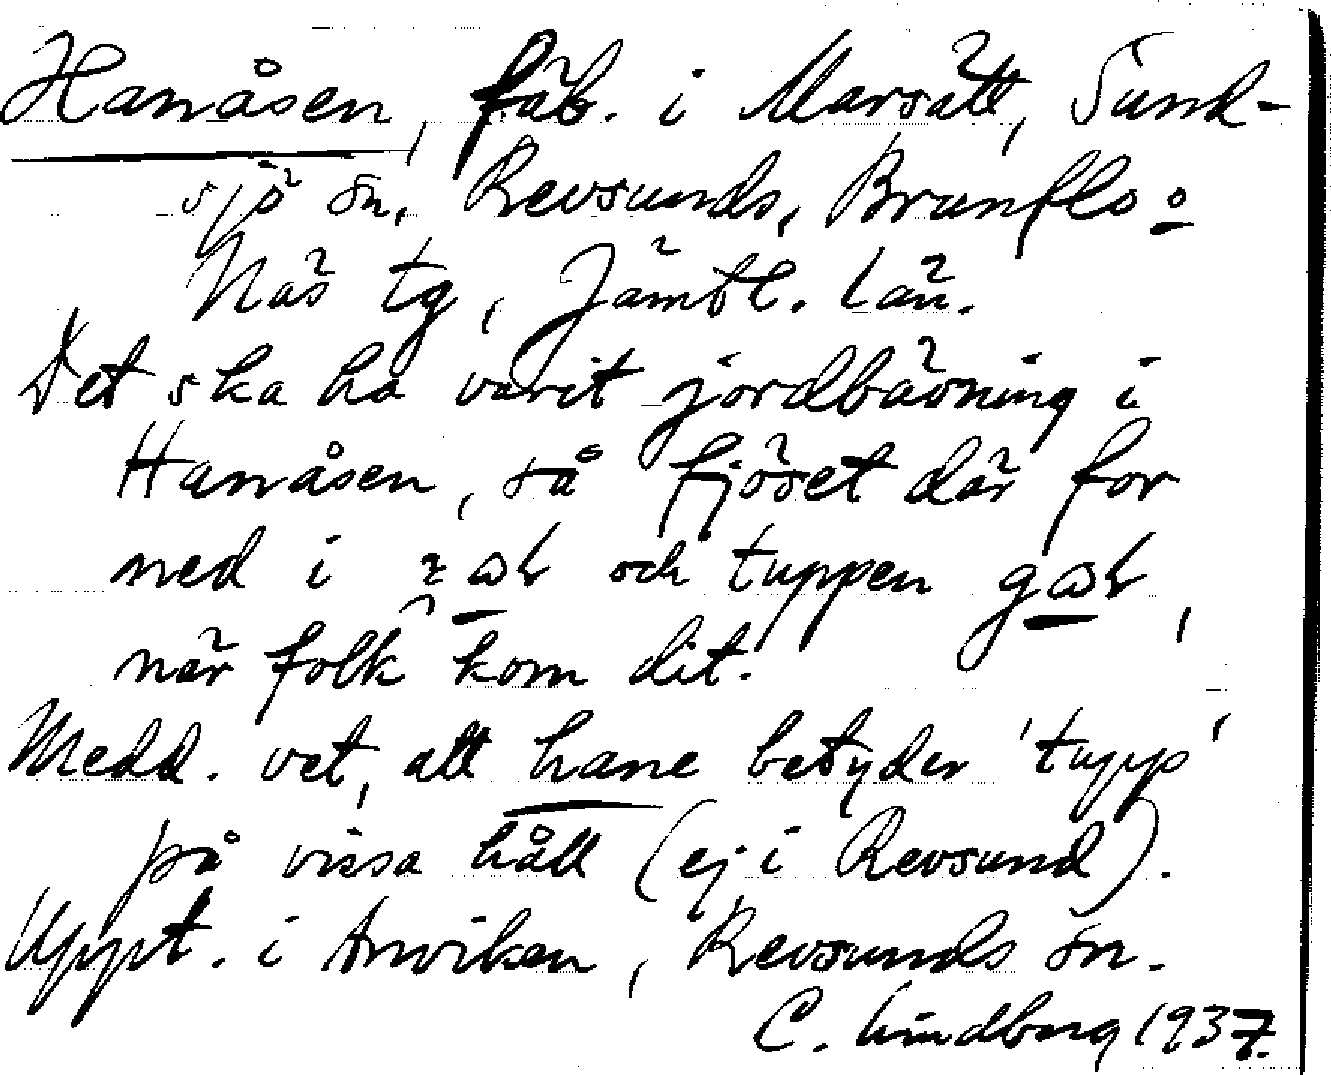 Hanåsen, fäb. i Marsätt, Sund-
sjö sn, Revsunds, Brunflo o
Näs tg, Jämtl. län.
Det ska ha varit jordbävning i
Hanåsen, så fjöset där for
ned i och tuppen
när folk kom dit.
Medd. vet, att hane betyder 'tupp'
på vissa håll (ej i Revsund).
Uppt. i Anviken, Revsunds sn.
C. Lindberg 1937.